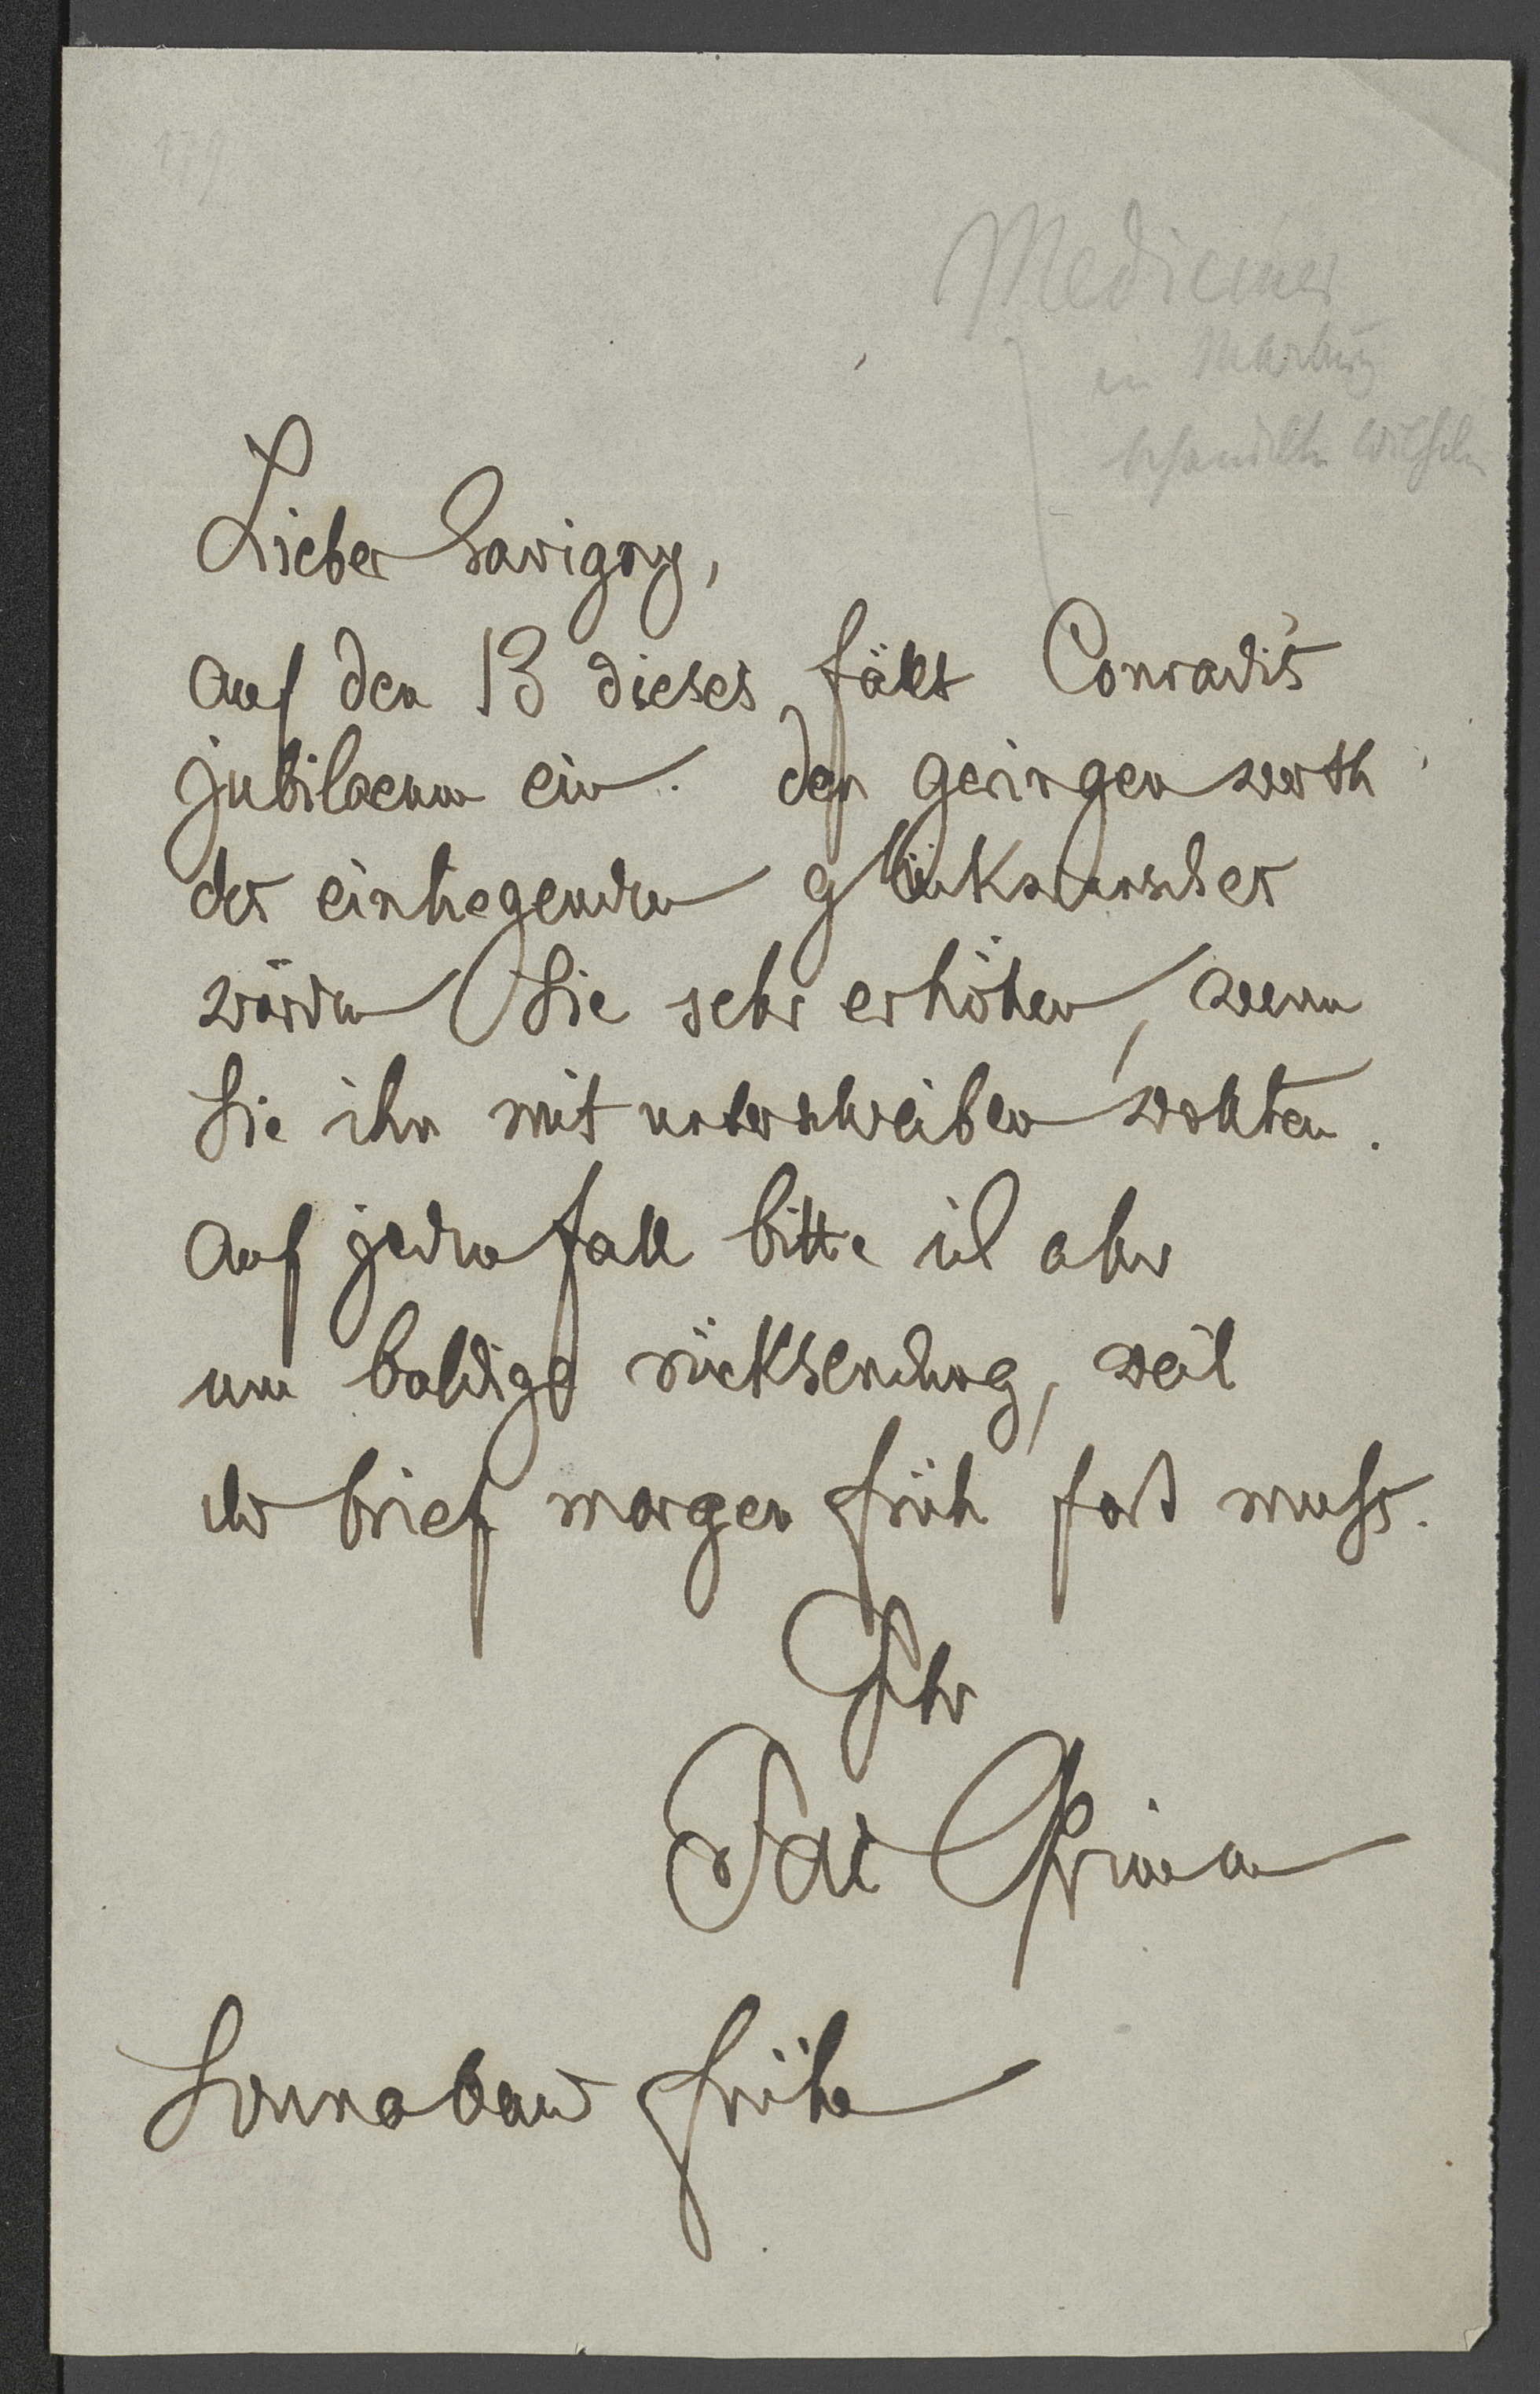 139
Mediciner
in Marburg
behandelte Wilhelm
Lieber Savigny,
auf den 13 dieses fällt Conradi's
jubilaeum ein. den geringen werth
des einliegenden glückwunsches
würden Sie sehr erhöhen, wenn
Sie ihn mit unterschreiben wollten.
auf jeden fall bitte ich aber
um baldige rücksendung, weil
der brief morgen früh fort muſs.
Ihr
Jac Grimm
Sonnabend frühe